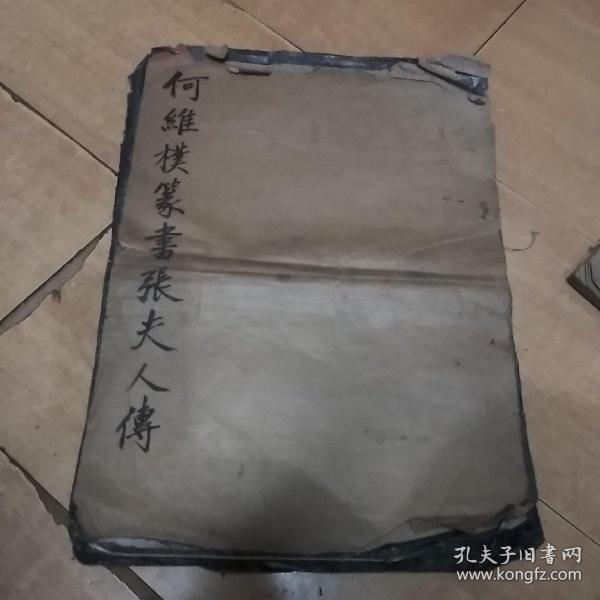 何維樸篆書張夫人傳
孔夫子旧書网
www.kongfz.com